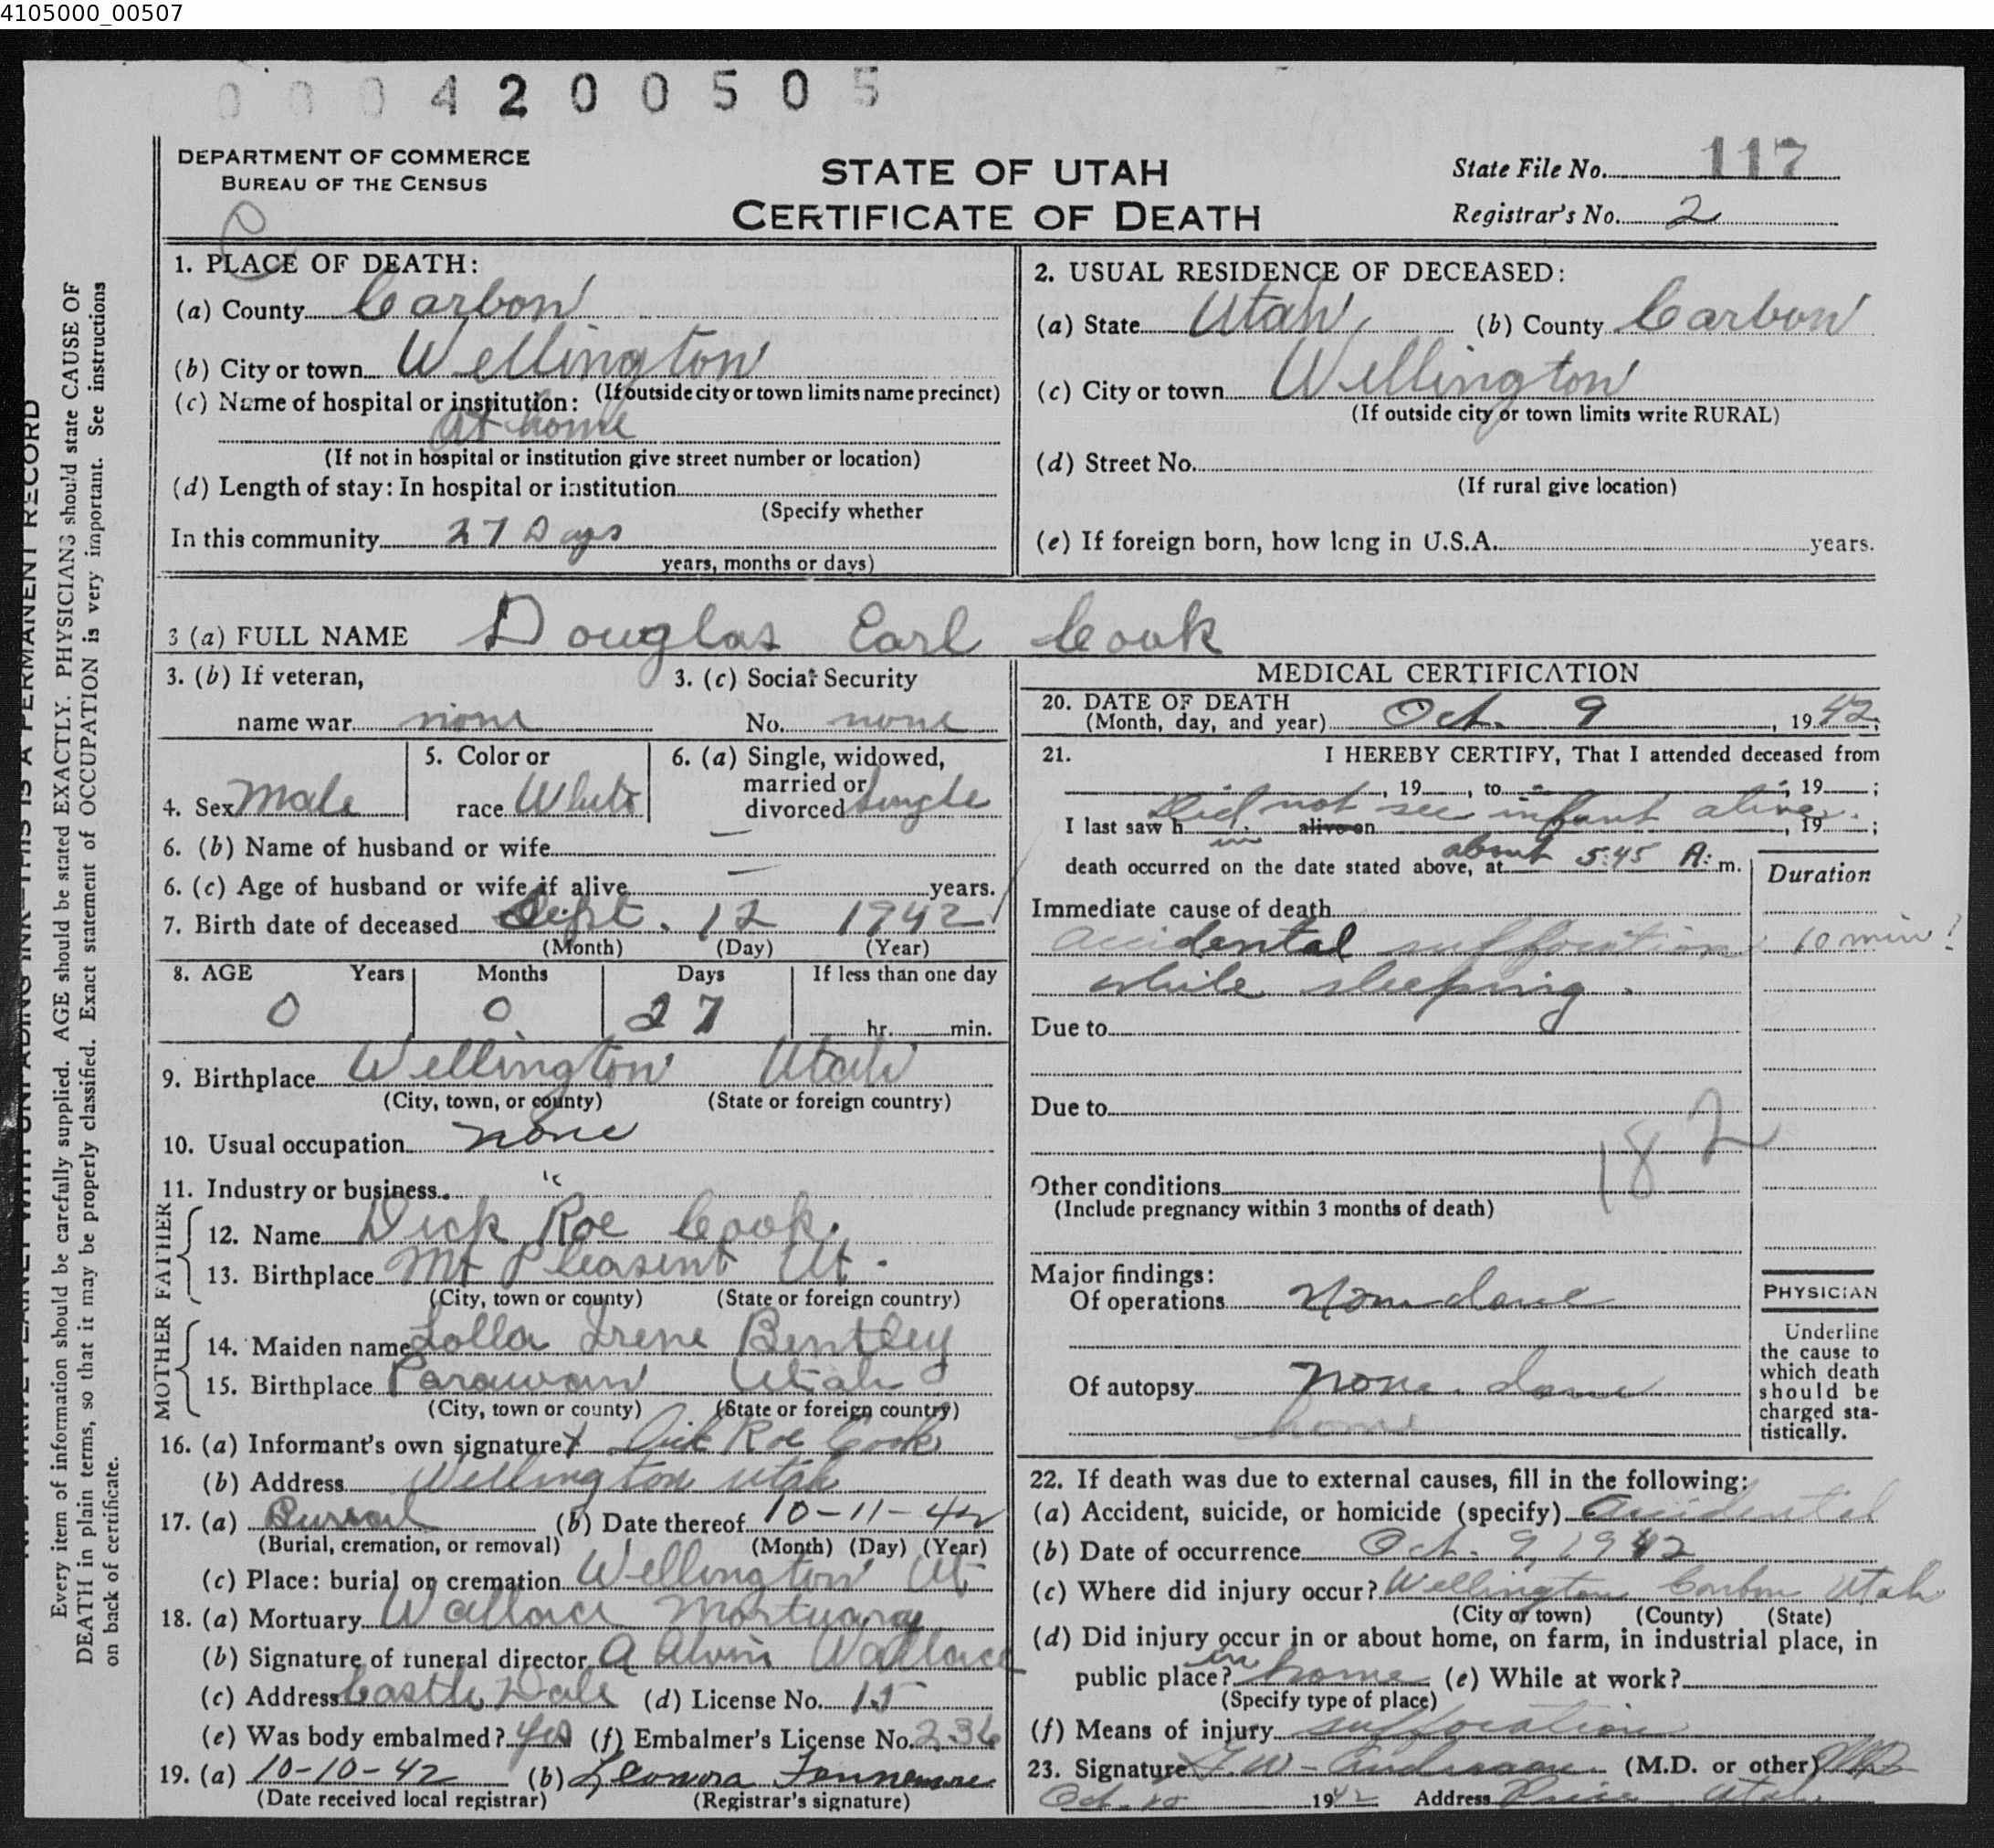 4105000_00507
0 0 0 4 2 0 0 5 0 5
DEPARTMENT OF COMMERCE
BUREAU OF THE CENSUS
STATE OF UTAH
CERTIFICATE OF DEATH
State File No. 117
Registrar's No. 2
C
1. PLACE OF DEATH:
(a) County Carbon
(b) City or town Wellington
(If outside city or town limits name precinct)
(c) Name of hospital or institution:
At home
(If not in hospital or institution give street number or location)
(d) Length of stay: In hospital or institution
(Specify whether
In this community 27 Days
years, months or days)
2. USUAL RESIDENCE OF DECEASED:
(a) State Utah (b) County Carbon
(c) City or town Wellington
(If outside city or town limits write RURAL)
(d) Street No.
(If rural give location)
(e) If foreign born, how long in U.S.A. years.
3 (a) FULL NAME Douglas Earl Cook
3. (b) If veteran,
name war none
3. (c) Social Security
No. none
4. Sex Male
5. Color or
race White
6. (a) Single, widowed,
married or
divorced Single
6. (b) Name of husband or wife —
6. (c) Age of husband or wife if alive — years.
7. Birth date of deceased Sept. 12 1942
(Month) (Day) (Year)
8. AGE Years Months Days If less than one day
0 0 27 hr. min.
9. Birthplace Wellington Utah
(City, town, or county) (State or foreign country)
10. Usual occupation none
11. Industry or business "
FATHER
12. Name Dick Roe Cook.
13. Birthplace Mt Pleasent Ut.
(City, town or county) (State or foreign country)
MOTHER
14. Maiden name Lolla Irene Bentley
15. Birthplace Parawan Utah
(City, town or county) (State or foreign country)
16. (a) Informant's own signature X Dick Roe Cook
(b) Address Wellington Utah
17. (a) Burial (b) Date thereof 10-11-42
(Burial, cremation, or removal) (Month) (Day) (Year)
(c) Place: burial or cremation Wellington Ut
18. (a) Mortuary Wallace Mortuary
(b) Signature of funeral director A Alvin Wallace
(c) Address Castle Dale (d) License No. 15
(e) Was body embalmed? yes (f) Embalmer's License No. 236
19. (a) 10-10-42 (b) Leonora
(Date received local registrar) (Registrar's signature)
MEDICAL CERTIFICATION
20. DATE OF DEATH
(Month, day, and year) Oct. 9, 1942;
21. I HEREBY CERTIFY, That I attended deceased from
, 19 , to , 19 ;
Did not see infant alive.
I last saw h im alive on , 19 ;
death occurred on the date stated above, at about 5:45 A. m.
Duration
Immediate cause of death
accidental suffocation 10 min!
while sleeping.
Due to
Due to
182
Other conditions
(Include pregnancy within 3 months of death)
Major findings:
Of operations None done
Of autopsy none done
home
PHYSICIAN
Underline
the cause to
which death
should be
charged sta-
tistically.
22. If death was due to external causes, fill in the following:
(a) Accident, suicide, or homicide (specify) accidental
(b) Date of occurrence Oct. 9, 1942
(c) Where did injury occur? Wellington Carbon Utah
(City or town) (County) (State)
(d) Did injury occur in or about home, on farm, in industrial place, in
public place? in home (e) While at work?
(Specify type of place)
(f) Means of injury suffocation
23. Signature (M.D. or other) MD
Oct. 10 1942 Address Price Utah
KEEP WRITE PLAINLY WITH UNFADING INK—THIS IS A PERMANENT RECORD
Every item of information should be carefully supplied. AGE should be stated EXACTLY. PHYSICIANS should state CAUSE OF
DEATH in plain terms, so that it may be properly classified. Exact statement of OCCUPATION is very important. See instructions
on back of certificate.